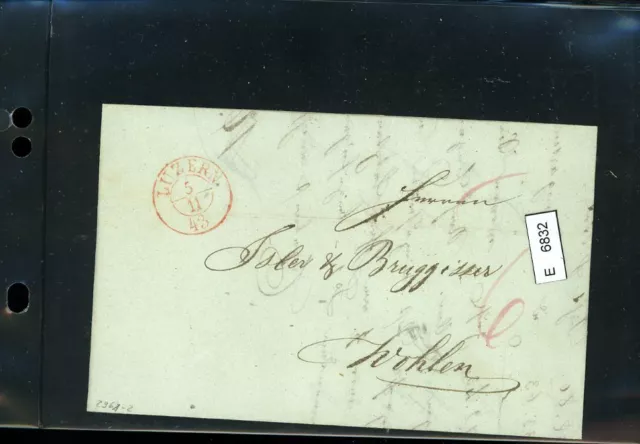 LUZERN
5
11
43
Herren
Isler & Bruggisser
Wohlen
E 6832